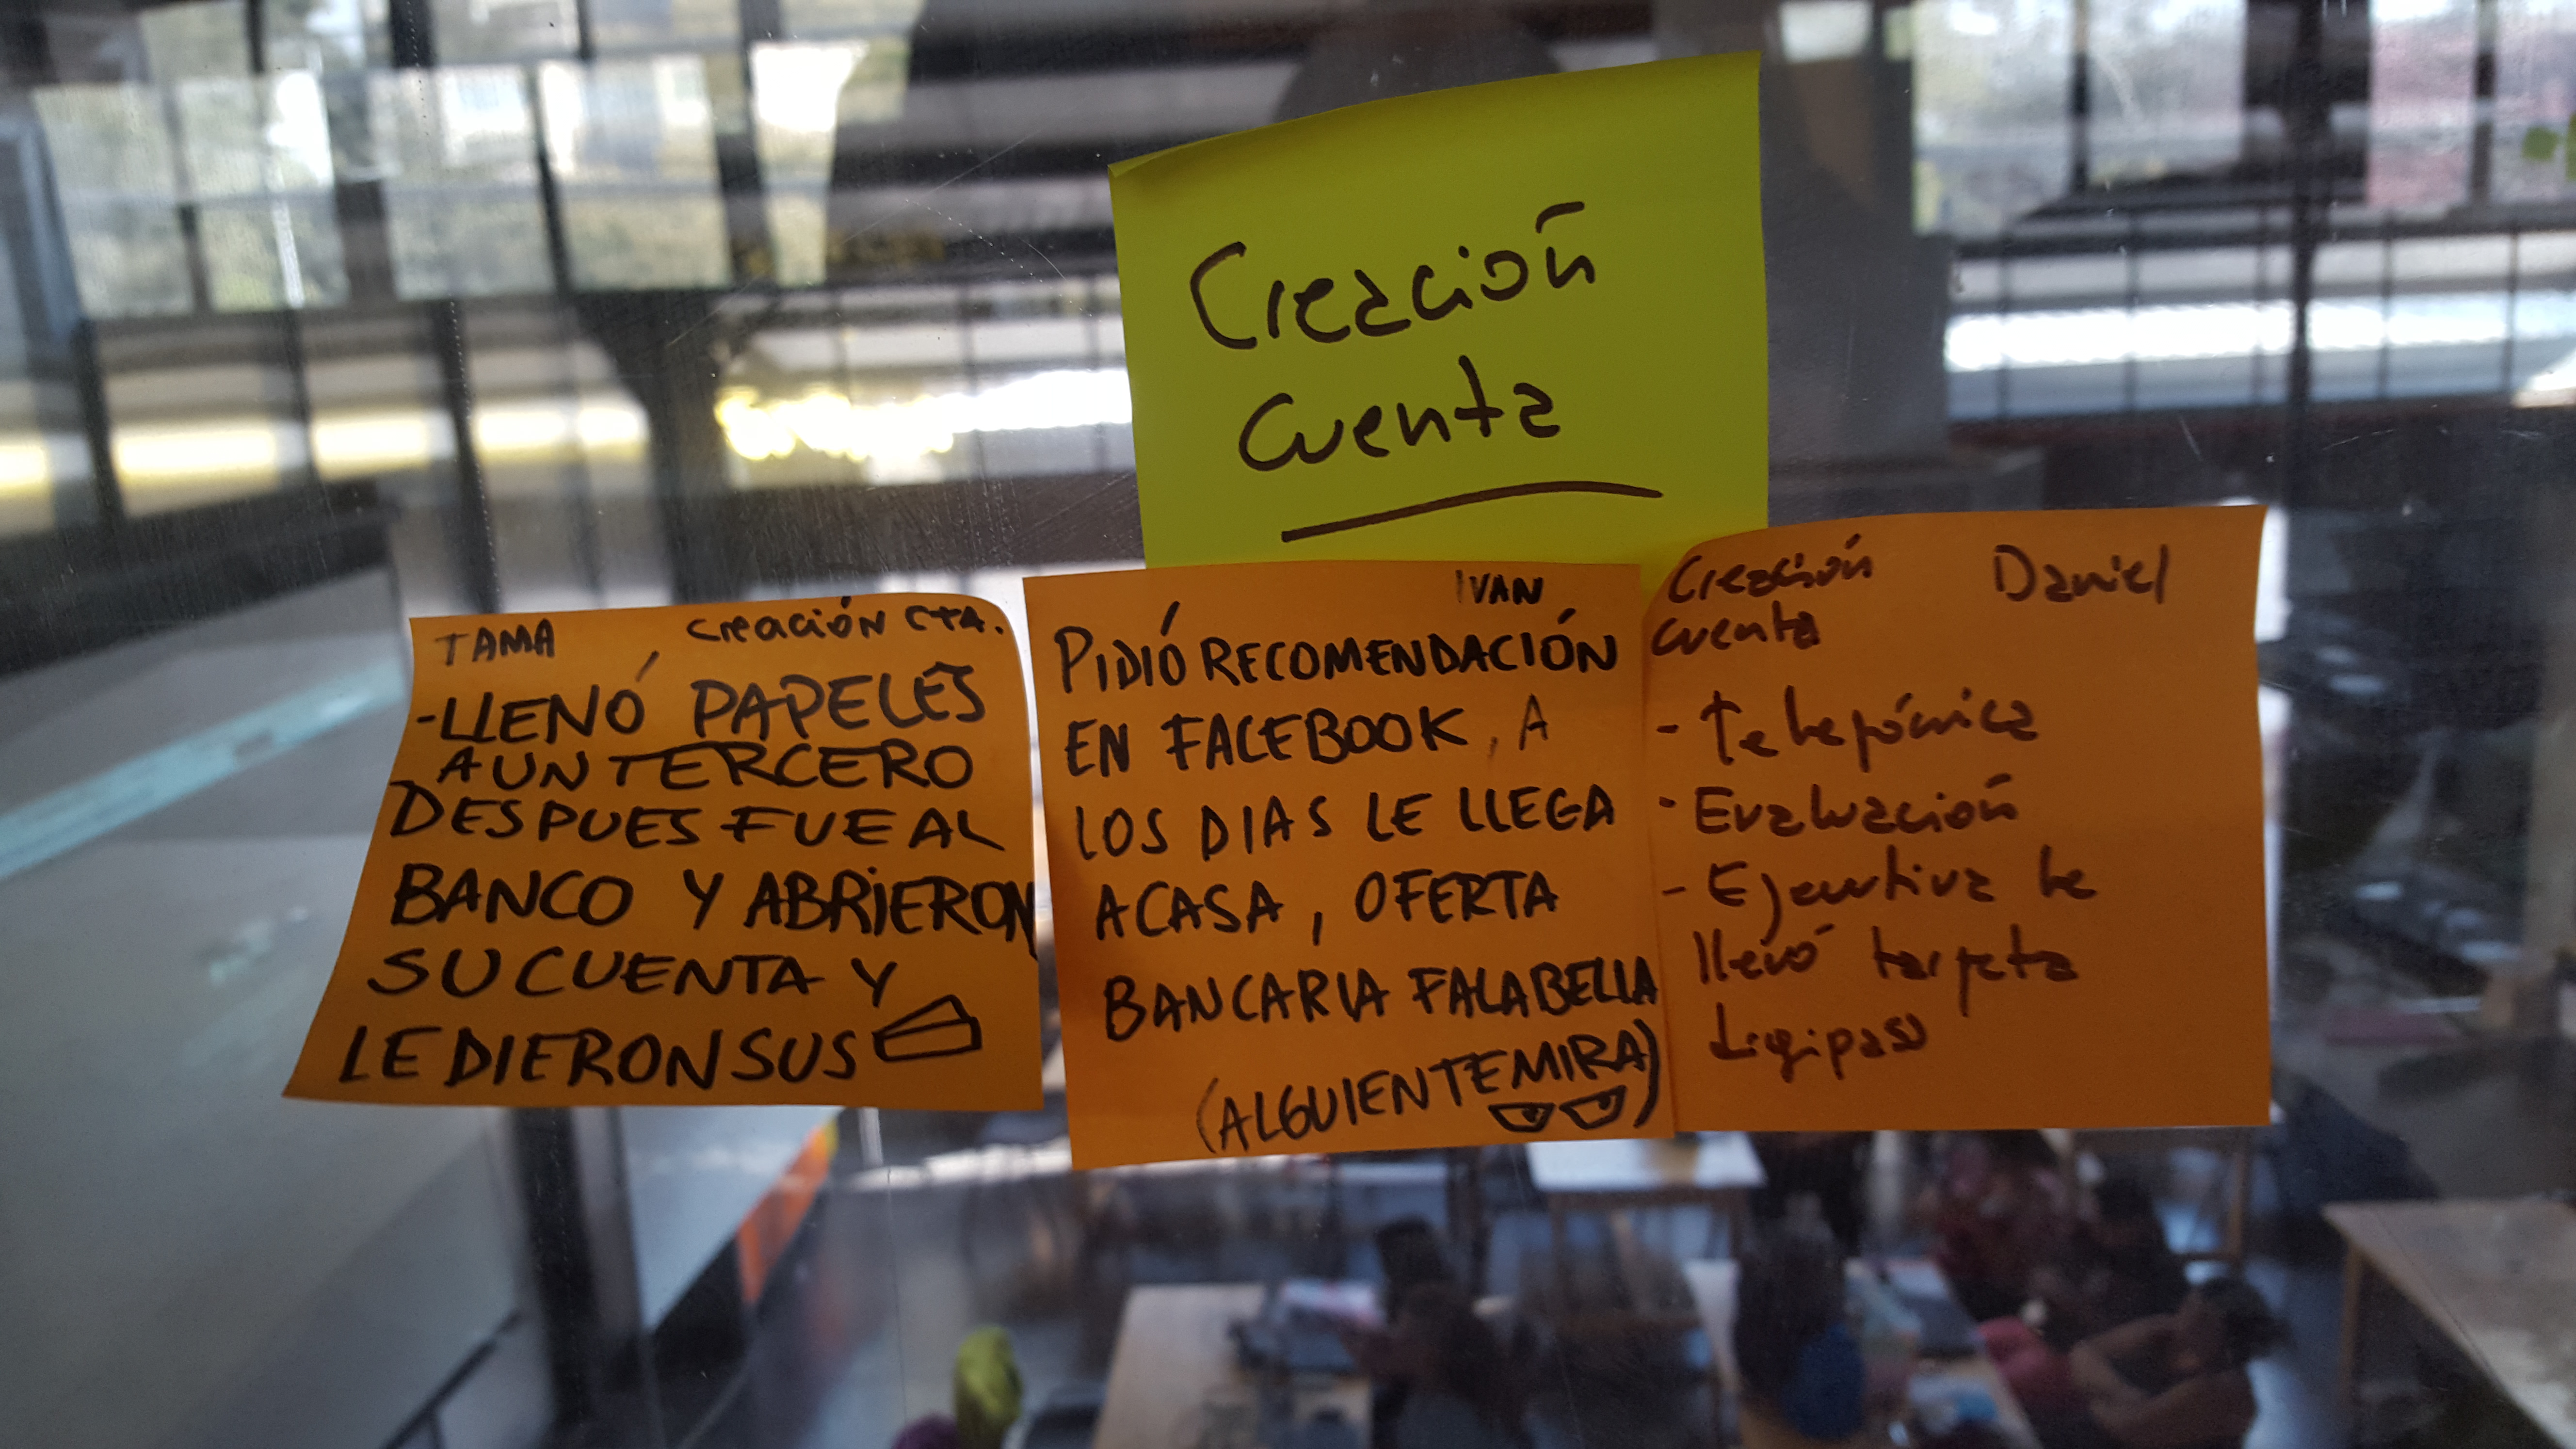 Creación
Cuenta
TAMA Creación CTA.
-LLENÓ PAPELES
A UN TERCERO
DESPUES FUE AL
BANCO Y ABRIERON
SU CUENTA Y
LE DIERON SUS
IVAN
PIDIÓ RECOMENDACIÓN
EN FACEBOOK, A
LOS DIAS LE LLEGA
A CASA, OFERTA
BANCARIA FALABELLA
(ALGUIEN TE MIRA)
Creación Daniel
cuenta
- Telefónica
- Evaluación
- Ejecutiva le
llevó tarjeta
digipass